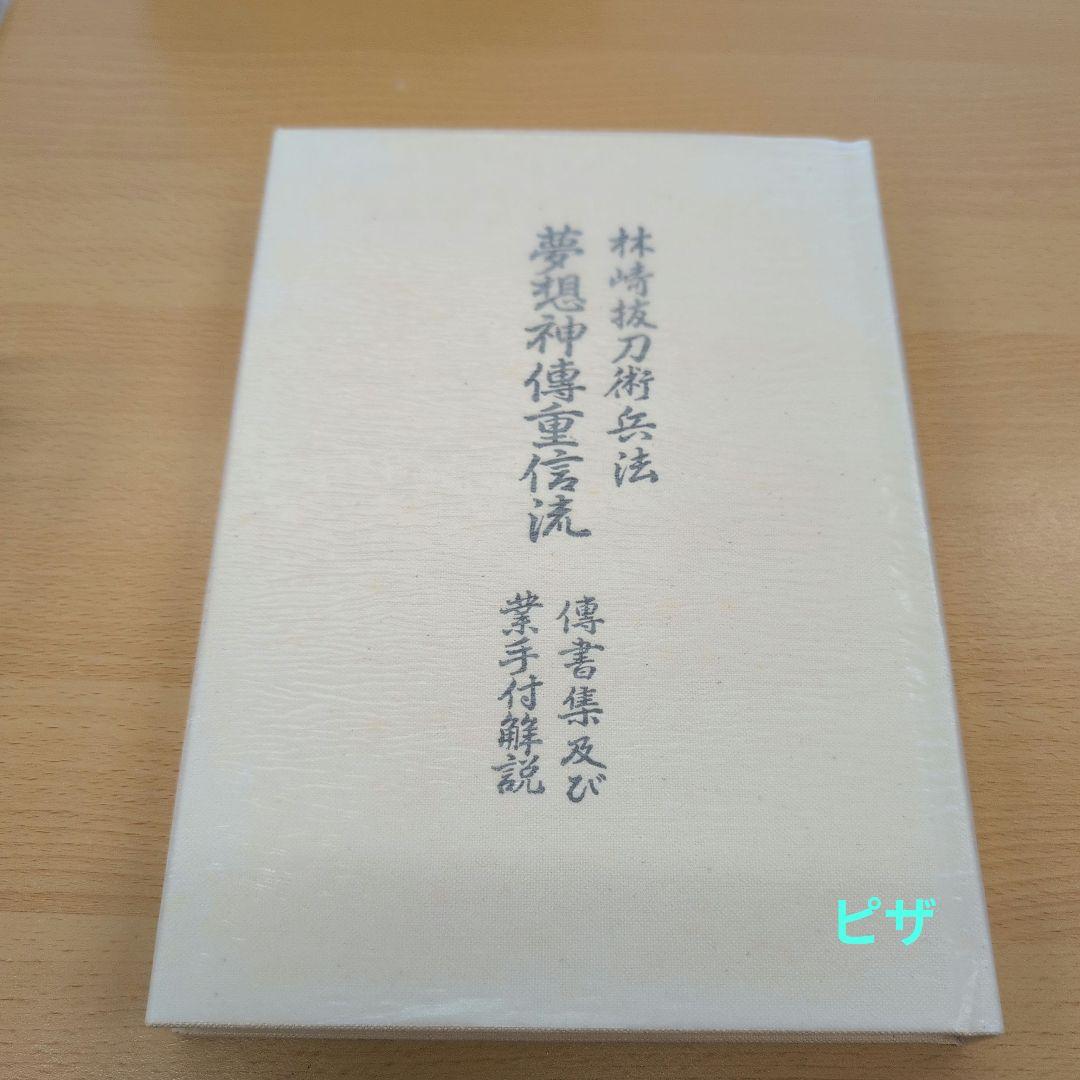 林崎抜刀術兵法
夢想神傳重信流
傳書集及び
業手付解説
ピザ